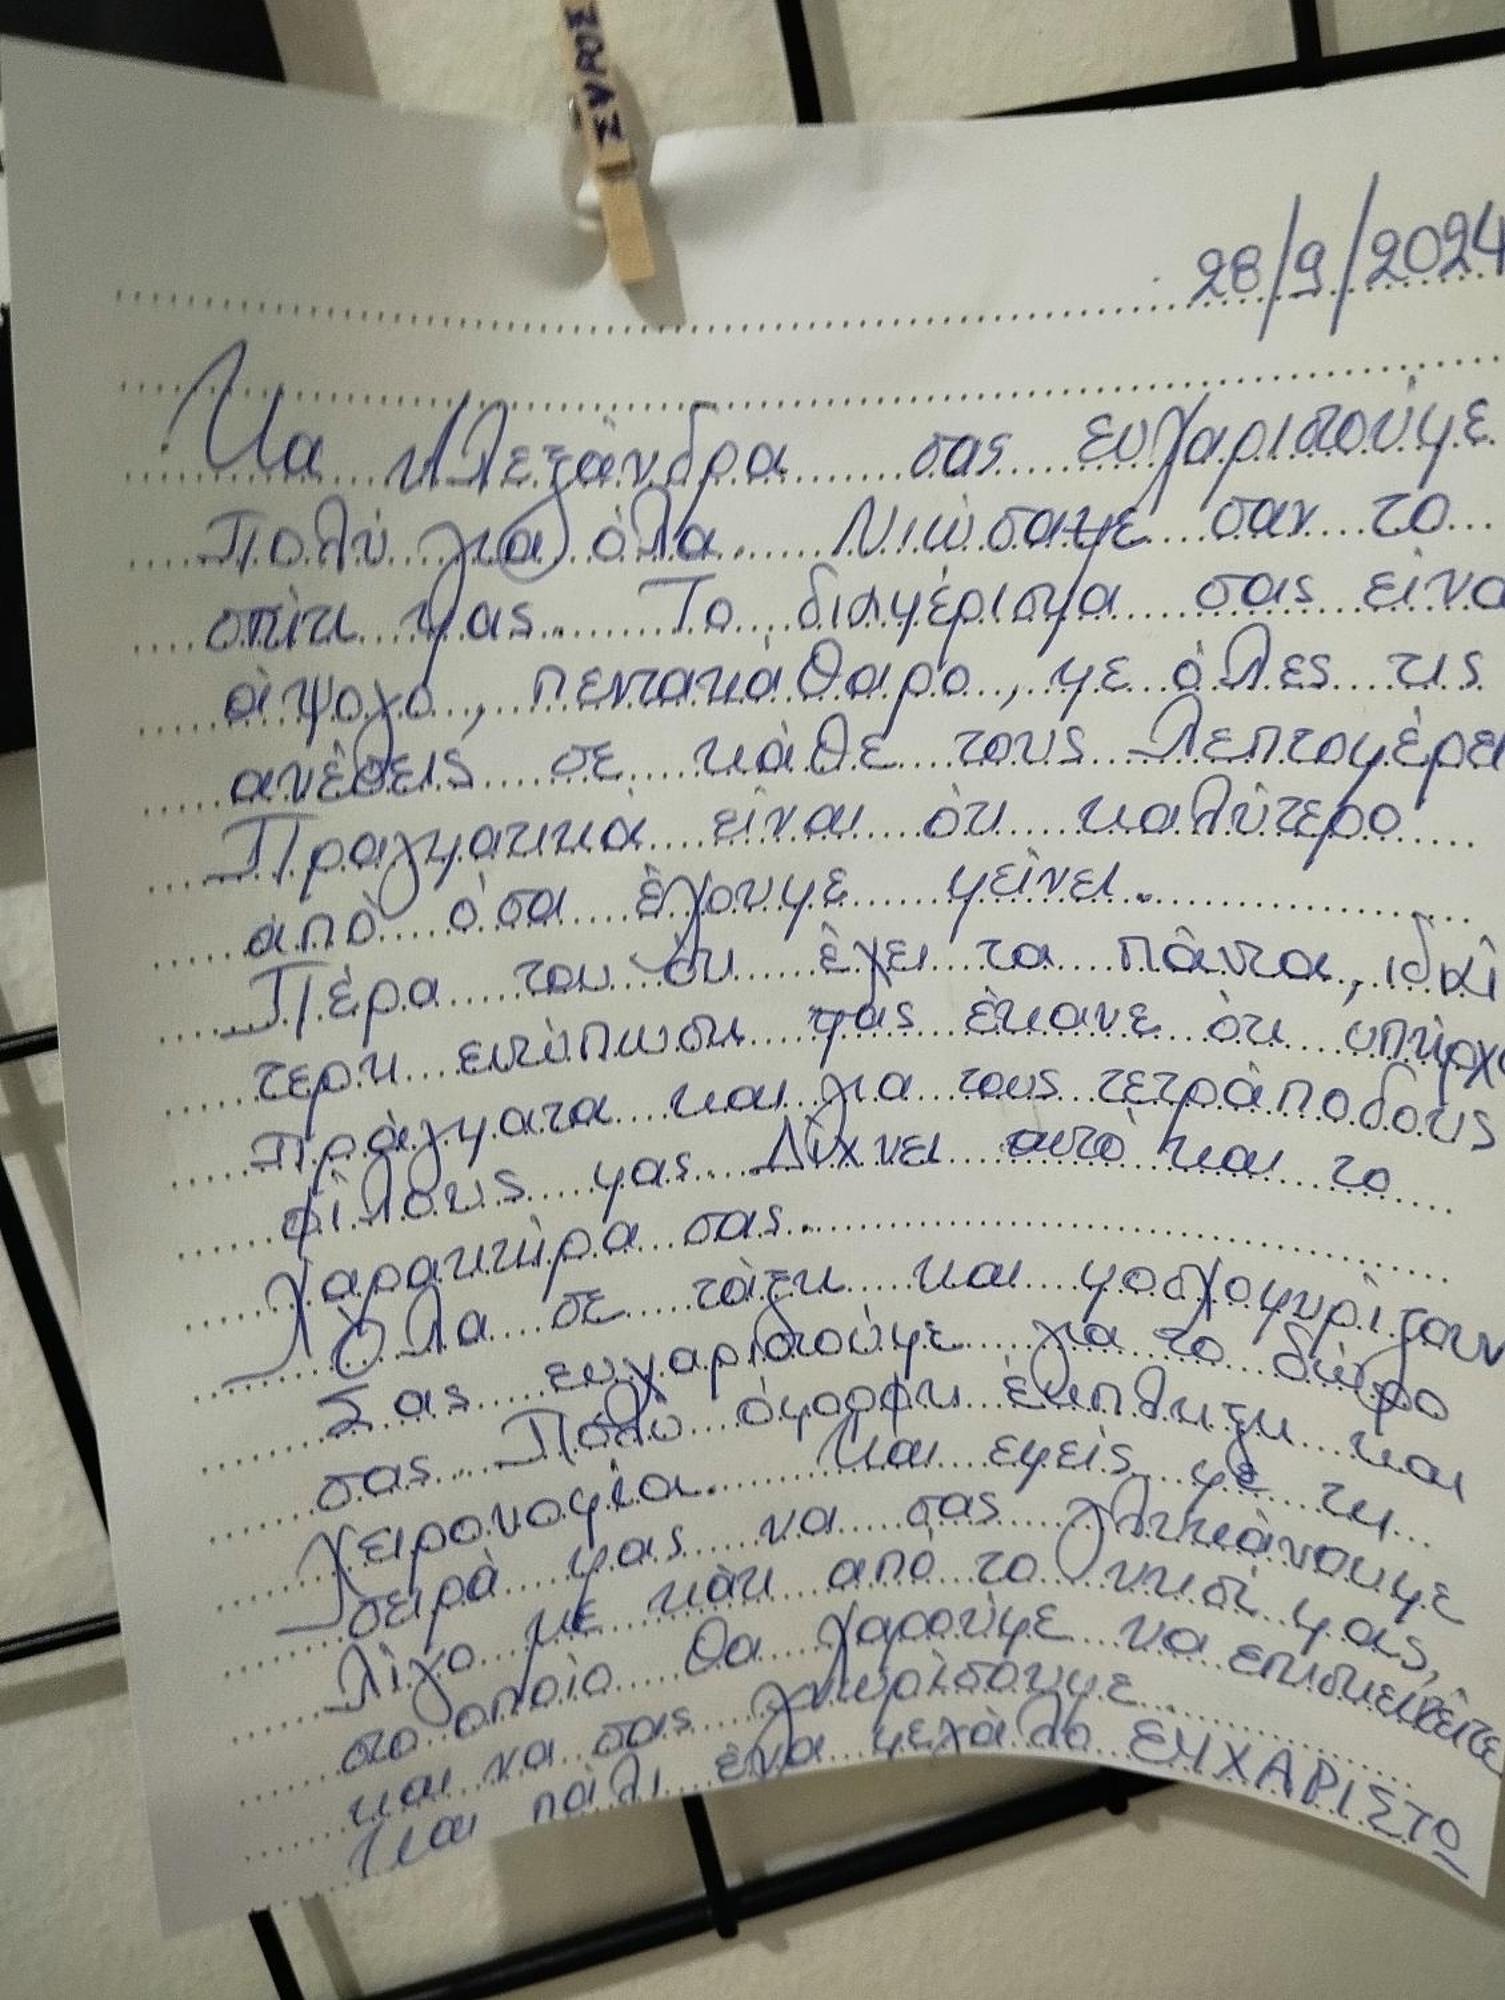 28/9/2024
Κα Αλεξάνδρα σας ευχαριστούμε
πολύ για όλα. Νιώσαμε σαν το
σπίτι μας. Το διαμέρισμα σας είνα
άψογο, πεντακάθαρο, με όλες τις
ανέσεις σε κάθε τους λεπτομέρει
Πραγματικά είναι ότι καλύτερο
από όσα έχουμε μείνει.
Πέρα του ότι έχει τα πάντα, ιδιαί
τερη εντύπωση μας έκανε ότι υπήρχα
πράγματα και για τους τετράποδους
φίλους μας. Δίχνει αυτό και το
χαρακτήρα σας.
Όλα σε τάξη και μοσχομυρίζουν
Σας ευχαριστούμε για το δώρο
σας. Πολύ όμορφη έκπληξη και
χειρονομία. Και εμείς με τη
σειρά μας να σας γλυκάνουμε
λίγο με κάτι από το νησί μας,
στο οποίο θα χαρούμε να επισκευθείτε
και να σας γνωρίσουμε.
Και πάλι ένα μεγάλο ΕΥΧΑΡΙΣΤΩ